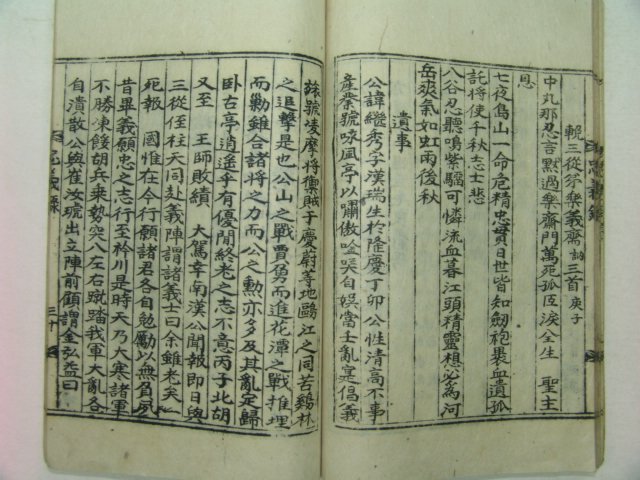 輓三從弟樂義齋訥三首 庚子
中丸那忍言默過樂齋門萬死孤臣淚全生 聖主
恩
七夜島山一命危精忠貫日世皆知劒袍裹血遺孤
託將使千秋志士悲
八谷忍聽鳴紫騮可憐流血暮江頭精靈想必爲河
岳爽氣如虹雨後秋
遺事
公諱繼秀字漢瑞生於隆慶丁卯公性清高不事
産業號咏風亭以嘯傲唫哭自娛當壬亂寔倡義
旅號凌摩將禦賊于慶蔚等地鷗江之同苦鷄林
之追擊是也公山之戰賈勇而進花潭之戰推埋
而勦雖合諸將之力而公之勳亦多及其亂定歸
卧古亭逍遙乎有優閒終老之志不意丙子北胡
又至 王師敗績 大駕幸南漢公聞報即日與
三從侄柱天同赴義陣謂諸義士曰余雖老矣一
死報 國惟在今行願諸君各自勉勵以無負夙
昔畢義願忠之志行至衿川是時天乃大寒諸軍
不勝凍餒胡兵乘勢突入左右蹴踏我軍大亂各
自潰散公與崔汝琥出立陣前顧謂金弘益曰
忠義錄
三十